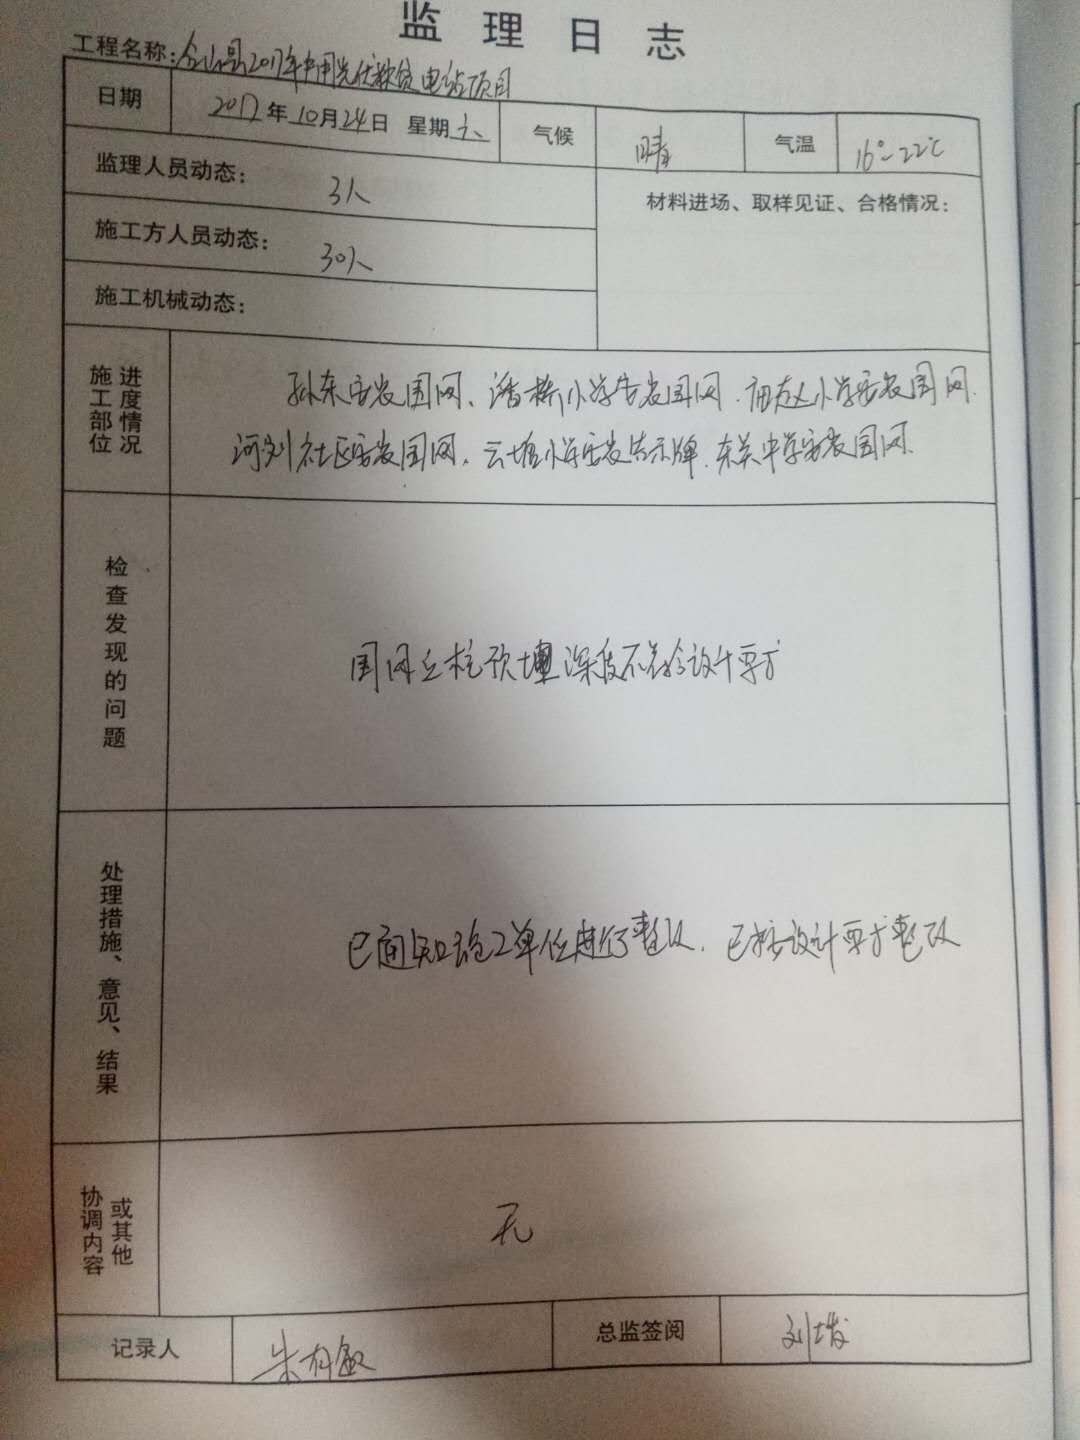 监理日志
工程名称：含山县2017年户用光伏扶贫电站项目
日期 2017年10月24日 星期六 气候 晴 气温 16°~22℃
监理人员动态： 3人
材料进场、取样见证、合格情况：
施工方人员动态： 30人
施工机械动态：
施工部位进度情况
孙东安装围网、潘桥小学安装围网、小学安装围网、
河刘社区安装围网、云塘小学安装告示牌、东关中学安装围网、
检查发现的问题
围网立柱预埋深度不符合设计要求
处理措施、意见、结果
已通知施工单位进行整改、已按设计要求整改
协调内容或其他
无
记录人 朱有 总监签阅 刘